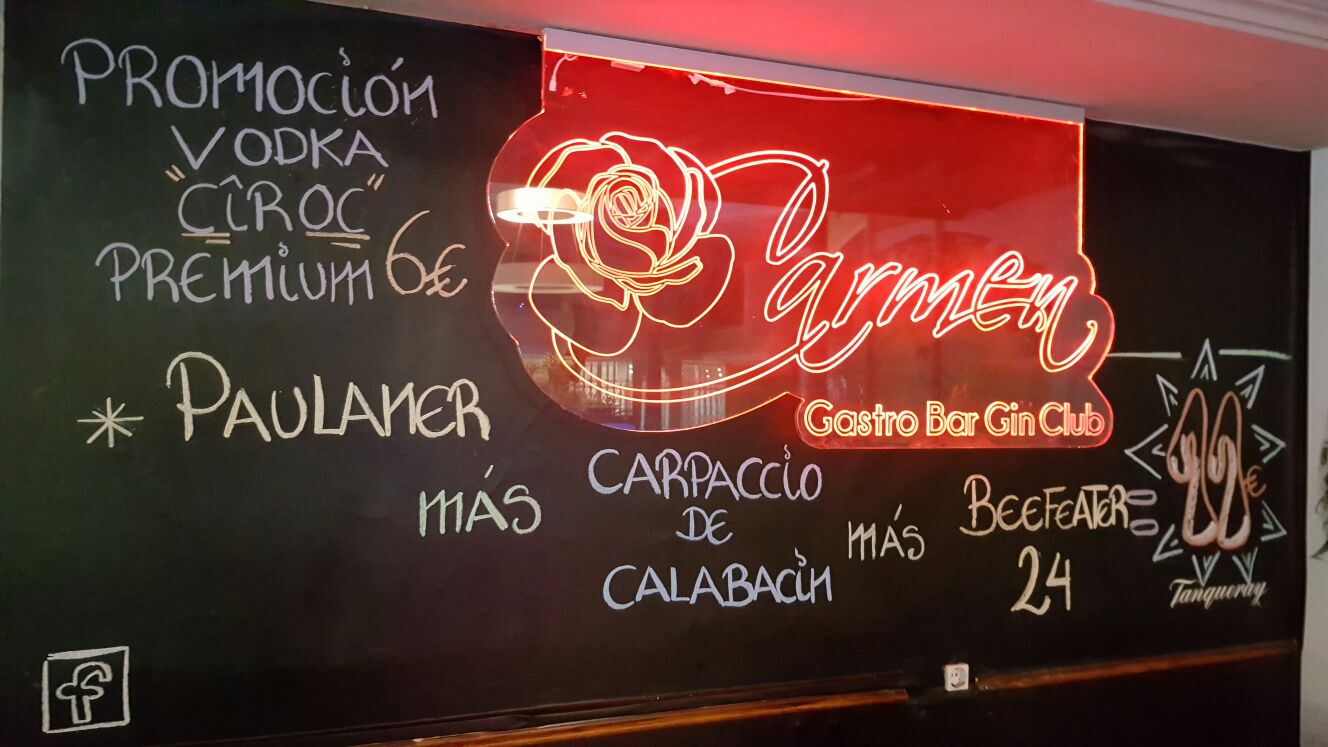 PROMOCIÓN
VODKA
"CÎROC"
PREMIUM 6€
Carmen
Gastro Bar Gin Club
* PAULANER
MÁS
CARPACCIO
DE
CALABACÍN
MÁS
BEEFEATER
24
=
€
Tanqueray
f